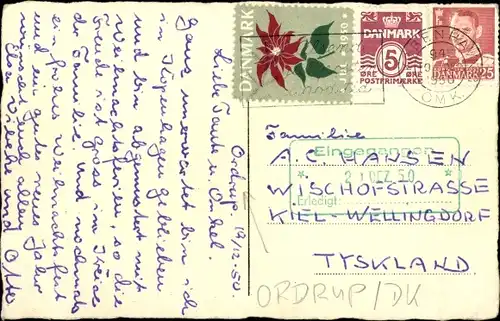 Ordrup, 19/12. 50.
Liebe Tante u. Onkel.
Ganz unerwartet bin ich
in Kopenhagen geblieben
und bin abgemustert mit
Weihnachtsferien, so die
Freude ist gross im Kreise
der Familie. Und nochmals
ein frohes Weihnachtsfest
und ein gutes neues Jahr
wünscht euch allen
Else, und Otto
DANMARK
JUL 1950
DANMARK
5
ØRE ØRE
POSTFRIMÆRKE
DANMARK 25
KØBENHAVN
OMK.
Familie
A.C. HANSEN
WISCHOFSTRASSE
KIEL-WELLINGDORF
TYSKLAND
Eingegangen
* 21 DEZ. 50 *
Erledigt:
ORDRUP/DK